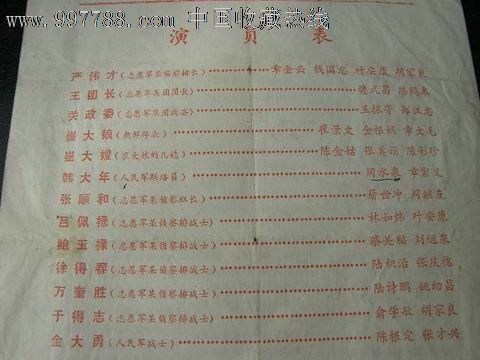 www.997788.com 中国收藏热线
演 员 表
严伟才(志愿军某侦察排长) 章金云 钱国忠 叶安康 胡家良
王团长(志愿军某团团长) 梁式昌
关政委(志愿军某团政委) 王振芳 郎汉忠
崔大娘(朝鲜群众) 崔景文 金根娣 章大毛
崔大嫂(崔大娘的儿媳) 陈金姑 张英谒 陈彩珍
韩大年(人民军联络员) 周水泉 章宏义
张顺和(志愿军某侦察班长) 屠世冲 周继友
吕佩禄(志愿军某侦察排战士) 林如炜 叶安康
鲍玉禄(志愿军某侦察排战士) 蔡兴福 刘运泉
徐得春(志愿军某侦察排战士) 陆积治 张庆
万奎胜(志愿军某侦察排战士) 陆诗鹏 姚幼昌
于得志(志愿军某侦察排战士) 俞学敏 胡家良
金大勇(人民军战士) 陈根定 张才兴